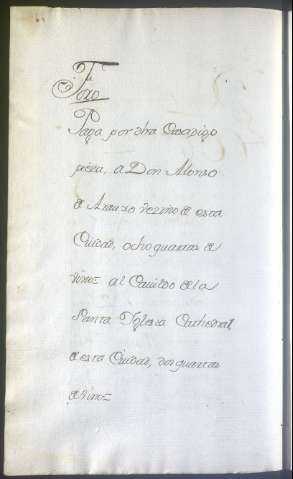 Foro
Paga por dha Casa, digo
pieza, a Don Alonso
de Arauxo vezino de esta
Ciudad, ocho quartas de
vino= al Cavildo de la
Santa Yglesia Cathedral
de esta Ciudad, dos quartas
de vino=